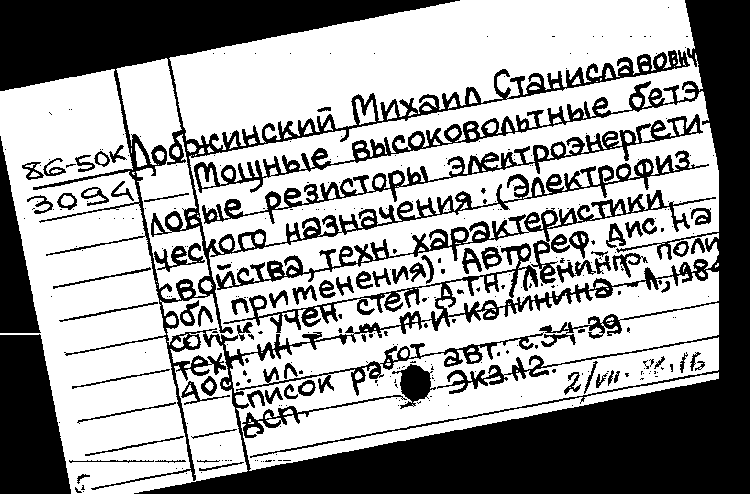 86-50К
3094
Добжинский, Михаил Станиславович
Мощные высоковольтные бетэ-
ловые резисторы электроэнергети-
ческого назначения: (Электрофиз.
свойства, техн. характеристики,
обл. применения): Автореф. дис. на
соиск. учен. степ. д.т.н. / Ленингр. поли
техн. ин-т им. М.И. Калинина. - Л., 1984
40с.: ил.
Список работ авт.: с.34-39.
ДСП. Экз.№2.